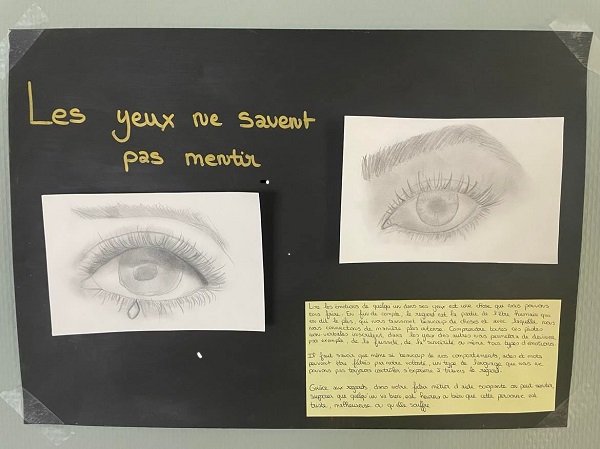 Les yeux ne savent
pas mentir
Lire les émotions de quelqu'un dans ses yeux est une chose que nous pouvons
tous faire. En fin de compte, le regard est la partie de l'être humain qui
en dit le plus, qui nous transmet beaucoup de choses et avec laquelle nous
nous connectons de manière plus intense. Comprendre toutes ces petites
non-verbales inscrivent, dans les yeux des autres nous permettra de deviner,
par exemple, de la tristesse, de la sincérité ou même tous types d'émotions.
Il faut savoir que même si beaucoup de nos comportements, idées et mots
peuvent être filtrés par notre volonté, un type de langage que nous ne
pouvons pas toujours contrôler s'exprime à travers le regard.
Grâce aux regards, dans notre futur métier d'aide soignante on peut
supposer que quelqu'un va bien, est heureux ou bien que cette personne est
triste, malheureuse ou qu'elle souffre